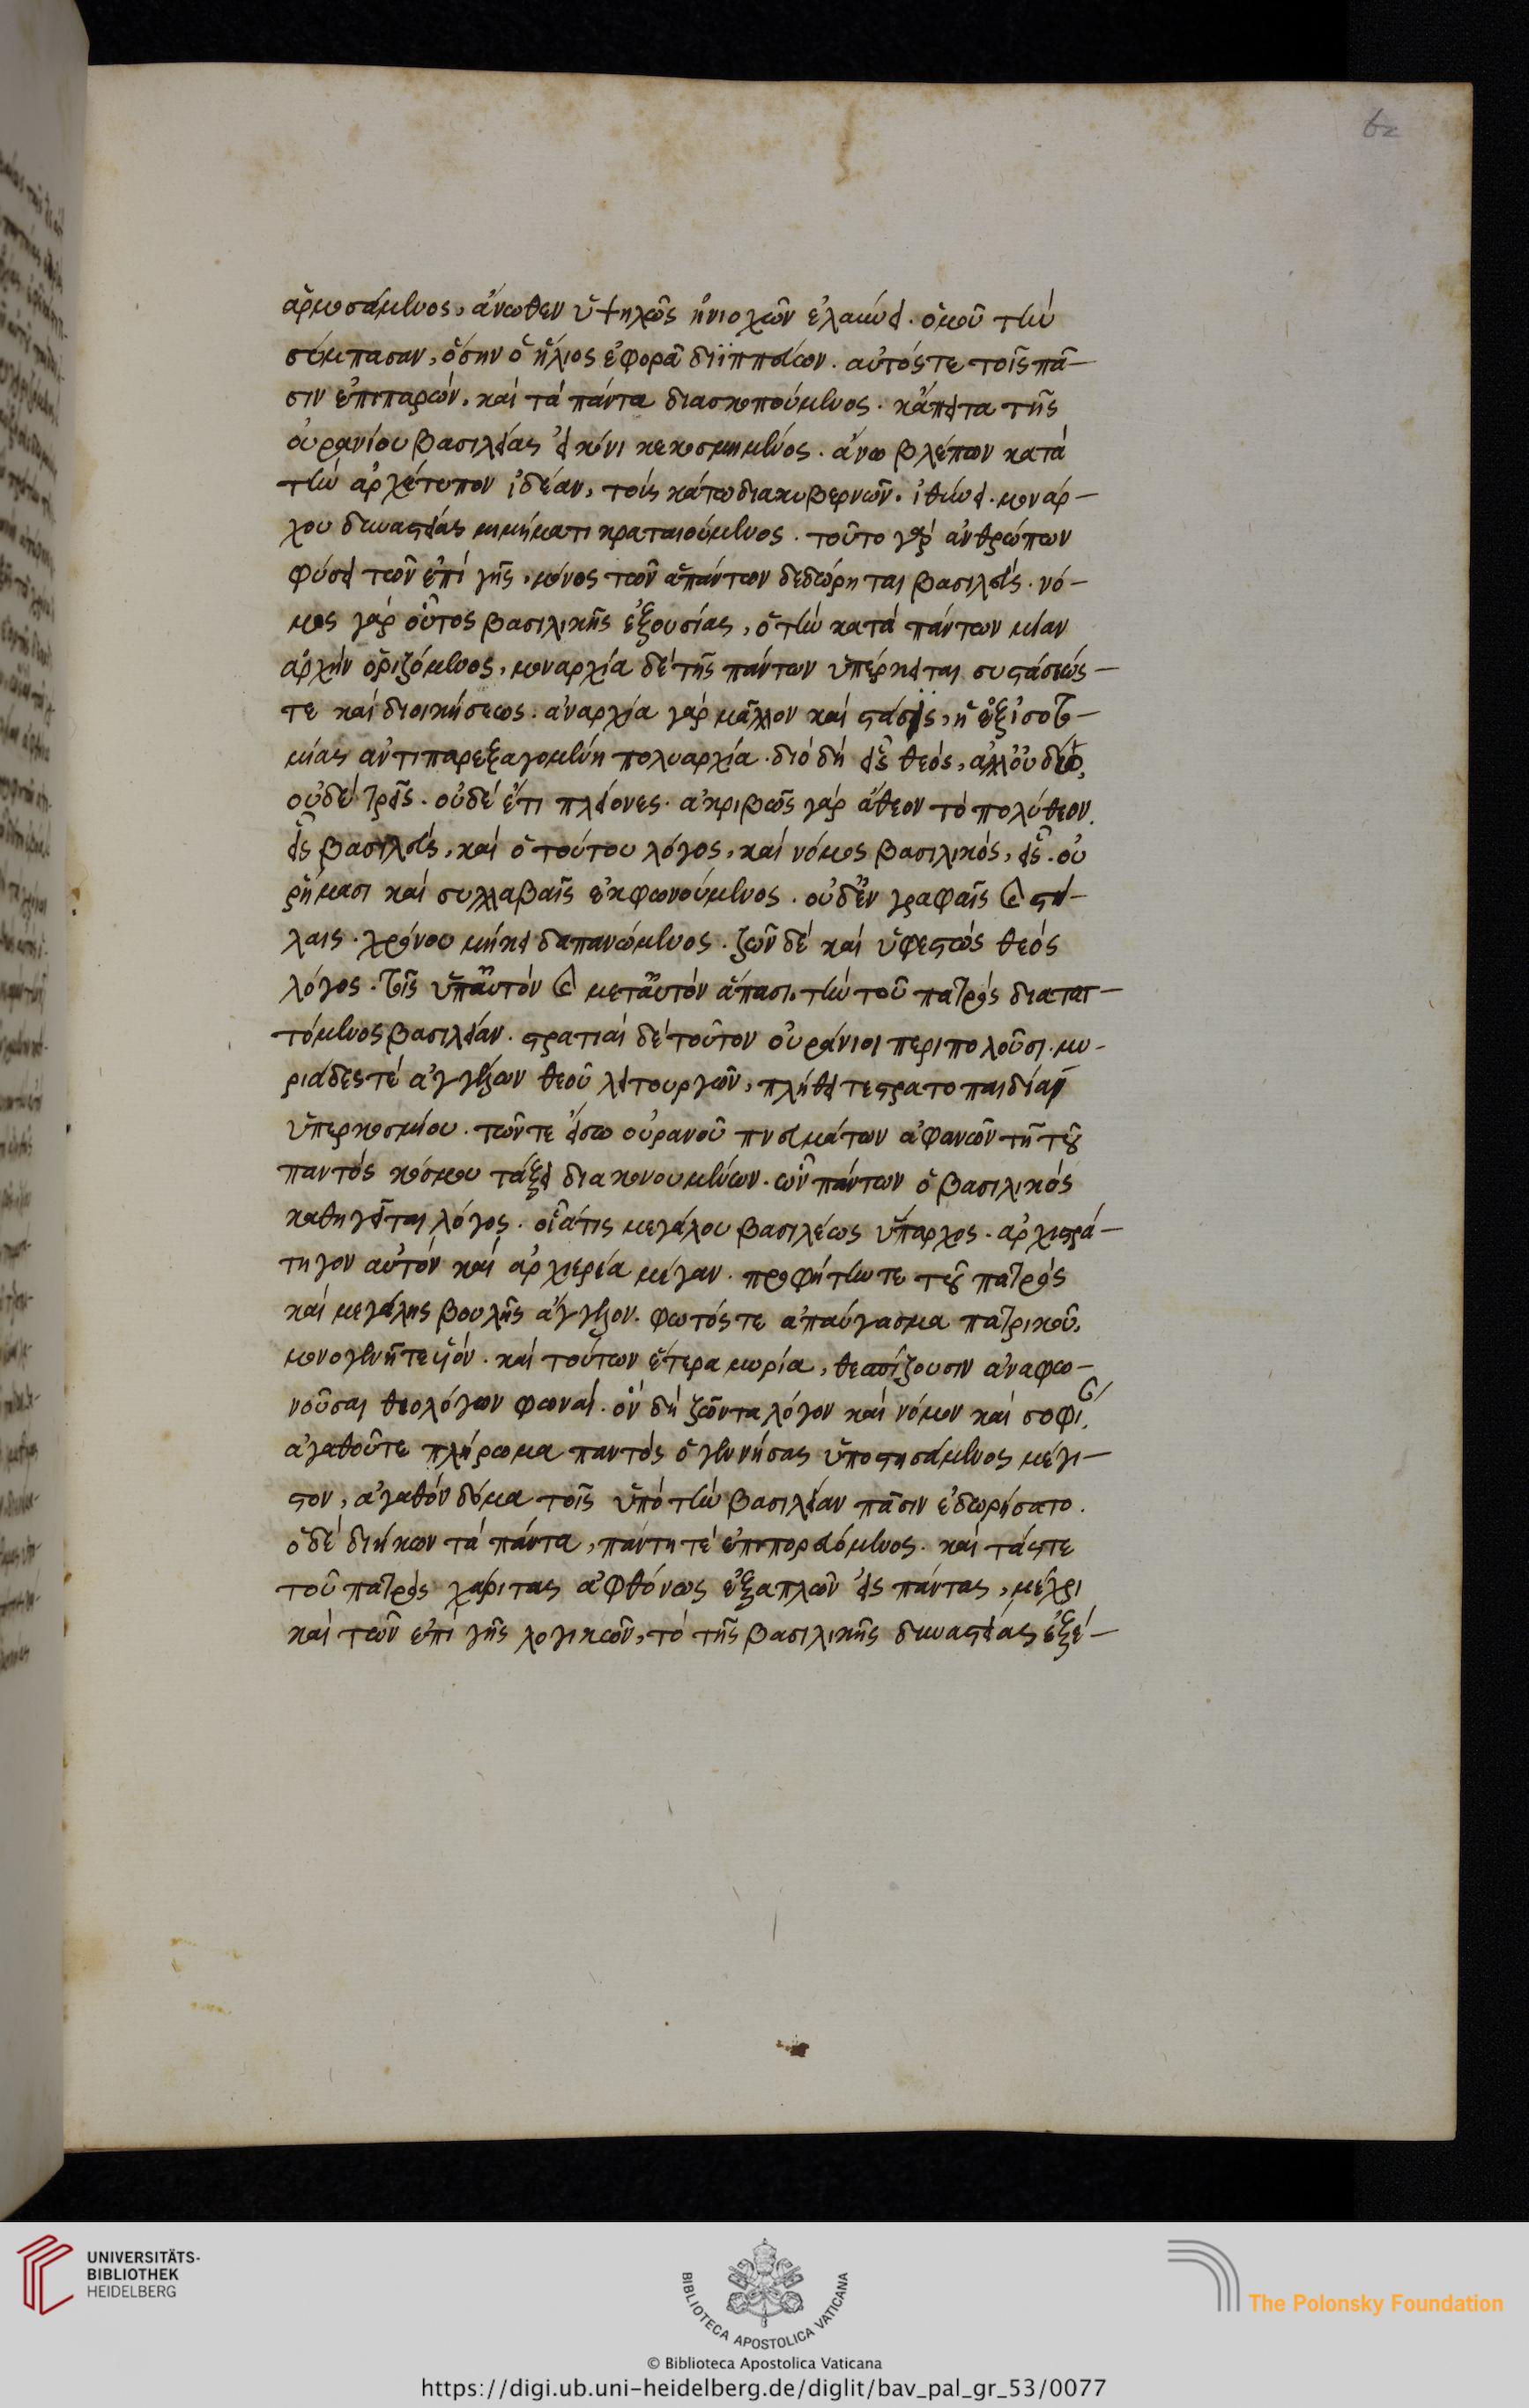 62
ἁρμοσάμενος, ἄνωθεν ὑψηλῶς ἡνιοχῶν ἐλαύνει. ὁμοῦ τὴν
σύμπασαν, ὅσην ὁ ἥλιος ἐφορᾷ διϊππεύων. αὐτός τε τοῖς πᾶ-
σιν ἐπιπαρών, καὶ τὰ πάντα διασκοπούμενος. κἄπειτα τῆς
οὐρανίου βασιλείας εἰκόνι κεκοσμημένος. ἄνω βλέπων κατὰ
τὴν ἀρχέτυπον ἰδέαν, τοὺς κάτω διακυβερνῶν. ἰθύνει. μονάρ-
χου δυναστείας μιμήματι κραταιούμενος. τοῦτο γὰρ ἀνθρώπων
φύσει τῶν ἐπὶ γῆς, μόνος τῶν ἁπάντων δεδώρηται βασιλεύς. νό-
μος γὰρ οὗτος βασιλικῆς ἐξουσίας, ὁ τὴν κατὰ πάντων μίαν
ἀρχὴν ὁριζόμενος, μοναρχία δὲ τῆς πάντων ὑπέρκειται συστάσεώς
τε καὶ διοικήσεως. ἀναρχία γὰρ μᾶλλον καὶ στάσις, ἡ ἐξ ἰσοτι-
μίας ἀντιπαρεξαγομένη πολυαρχία. διὸ δὴ εἷς θεός, ἀλλ' οὐ δύο,
οὐδὲ τρεῖς. οὐδὲ ἔτι πλείονες. ἀκριβῶς γὰρ ἄθεον τὸ πολύθεον.
εἷς βασιλεύς, καὶ ὁ τούτου λόγος, καὶ νόμος βασιλικός, εἷς. οὐ
ῥήμασι καὶ συλλαβαῖς ἐκφωνούμενος. οὐδ' ἐν γραφαῖς καὶ στή-
λαις. χρόνου μήκει δαπανώμενος. ζῶν δὲ καὶ ὑφεστὼς θεὸς
λόγος. τοῖς ὑπ' αὐτὸν καὶ μετ' αὐτὸν ἅπασι, τὴν τοῦ πατρὸς διατατ-
τόμενος βασιλείαν. στρατιαὶ δὲ τοῦτον οὐράνιοι περιπολοῦσι. μυ-
ριάδες τὲ ἀγγέλων θεοῦ λειτουργῶν, πλήθει τε στρατοπαιδίας
ὑπερκοσμίου. τῶν τε εἴσω οὐρανοῦ πνευμάτων ἀφανῶν τῇ τοῦ
παντὸς κόσμου τάξει διακονουμένων. ὧν πάντων ὁ βασιλικὸς
καθηγεῖται λόγος. οἷά τις μεγάλου βασιλέως ὕπαρχος. ἀρχιστρά-
τηγον αὐτὸν καὶ ἀρχιερέα μέγαν. προφήτην τε τοῦ πατρὸς
καὶ μεγάλης βουλῆς ἄγγελον. φωτός τε ἀπαύγασμα πατρικοῦ,
μονογενῆ τε υἱόν. καὶ τούτων ἕτερα μυρία, θεσπίζουσιν ἀναφω-
νοῦσαι θεολόγων φωναί. ὃν δὴ ζῶντα λόγον καὶ νόμον καὶ σοφί,
ἀγαθοῦ τε πλήρωμα παντὸς ὁ γεννήσας ὑποστησάμενος μέγι-
στον, ἀγαθὸν δόμα τοῖς ὑπὸ τὴν βασιλείαν πᾶσιν ἐδωρήσατο.
ὁ δὲ διήκων τὰ πάντα, πάντη τὲ ἐπιπορευόμενος. καὶ τάς τε
τοῦ πατρὸς χάριτας ἀφθόνως ἐξαπλῶν εἰς πάντας, μέχρι
καὶ τῶν ἐπὶ γῆς λογικῶν, τὸ τῆς βασιλικῆς δυναστείας ἐξέ-
UNIVERSITÄTS-
BIBLIOTHEK
HEIDELBERG
BIBLIOTECA APOSTOLICA VATICANA
The Polonsky Foundation
© Biblioteca Apostolica Vaticana
https://digi.ub.uni-heidelberg.de/diglit/bav_pal_gr_53/0077